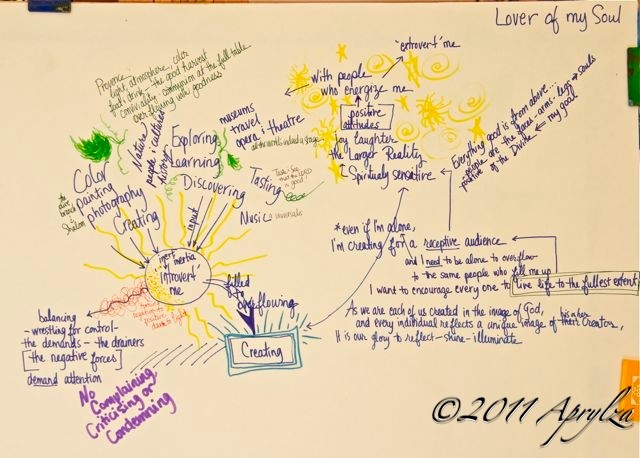 Lover of my Soul
'extrovert' me
with people
who energize me
positive
attitudes
joy laughter
the Larger Reality
Spiritually sensitive
Everything good is from above...
people are the face-arms-legs & souls
of the Divine ← my goal
positive
Provence
light, atmosphere, color
food & drink - the good harvest
conviviality - communion at the full table
overflowing with goodness
museums
travel
opera & theatre
all the world's indeed a stage
Nature
people & cultures
history
Exploring
Learning
Discovering
Tasting
Taste & See
that the LORD
is good!
Music
universals
Color
painting
photography
Creating
the olive
branch &
Shalom
input
inert inertia
'introvert'
me
filled
to
overflowing
Creating
*even if I'm alone,
I'm creating for a receptive audience
and I need to be alone to overflow
to the same people who fill me up
I want to encourage every one to live life to the fullest extent
As we are each of us created in the image of God,
and every individual reflects a unique image of their Creator,
his or her
It is our glory to reflect - shine - illuminate
balancing
- wrestling for control -
the demands - the drainers
[the negative forces]
demand attention
negative to
positive
No
Complaining
Criticising or
Condemning
©2011 Aprylza